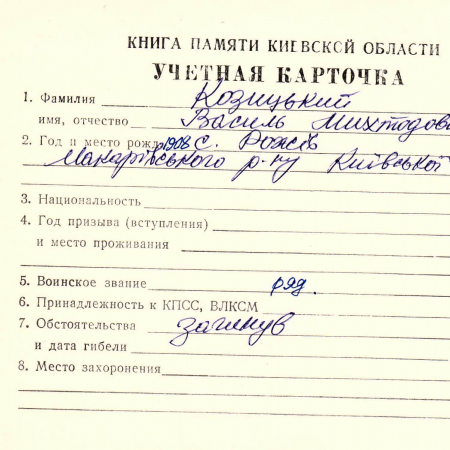 КНИГА ПАМЯТИ КИЕВСКОЙ ОБЛАСТИ
УЧЕТНАЯ КАРТОЧКА
1. Фамилия Козицький
имя, отчество Василь
2. Год и место рожд 1908 с. Рожів
Макарівського р-ну Київської
3. Национальность
4. Год призыва (вступления)
и место проживания
5. Воинское звание ряд.
6. Принадлежность к КПСС, ВЛКСМ
7. Обстоятельства загинув
и дата гибели
8. Место захоронения